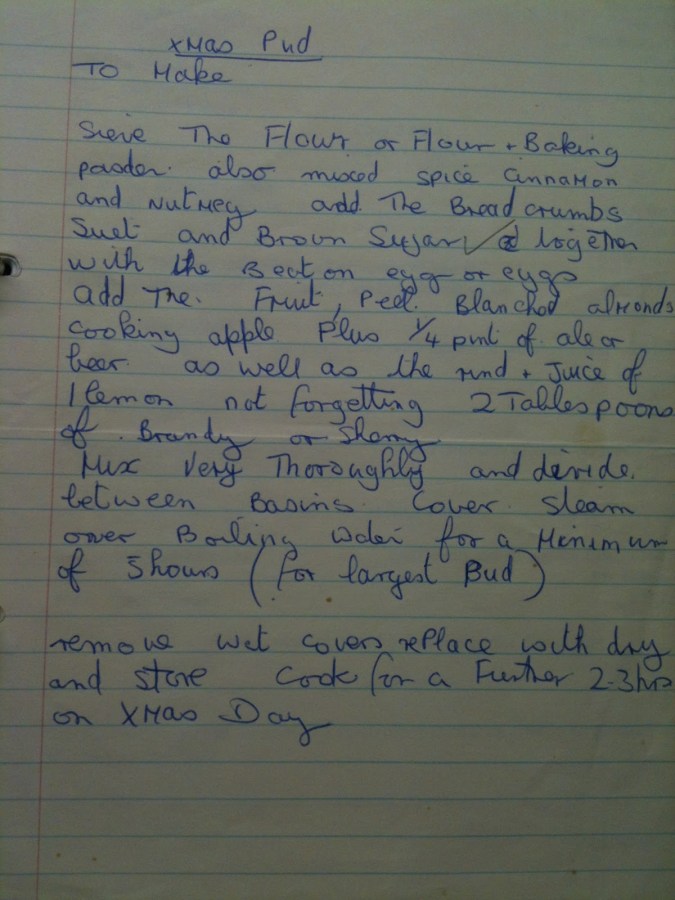 XMas Pud
TO Make
Sieve The Flour or Flour + Baking
powder. also mixed spice cinnamon
and NutMeg add The Bread crumbs
Suet and Brown Sugar together
with the Beaton egg or eggs
add The. Fruit, Peel. Blanched almonds
cooking apple Plus 1/4 pint of ale or
beer. as well as the rind + Juice of
1 lemon not forgetting 2 Tablespoons
of. Brandy or Sherry
Mix Very Thoroughly and divide.
between Basins. Cover. Steam
over Boiling water for a Minimum
of 5 hours (for largest Bud)
remove wet covers replace with dry
and store Cook for a Further 2-3 hrs
on XMas Day